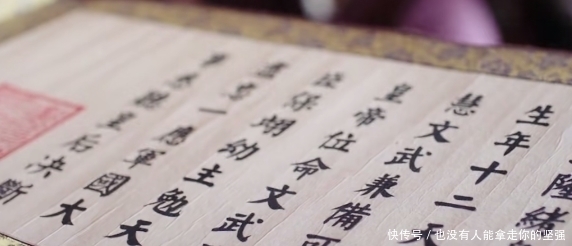 隆緒
生年十二
慧文武兼備可
皇帝位命文武
臣保翊幼主勉
盡忠一應軍國大
事悉聽皇后決斷
快传号/也没有人能拿走你的坚强